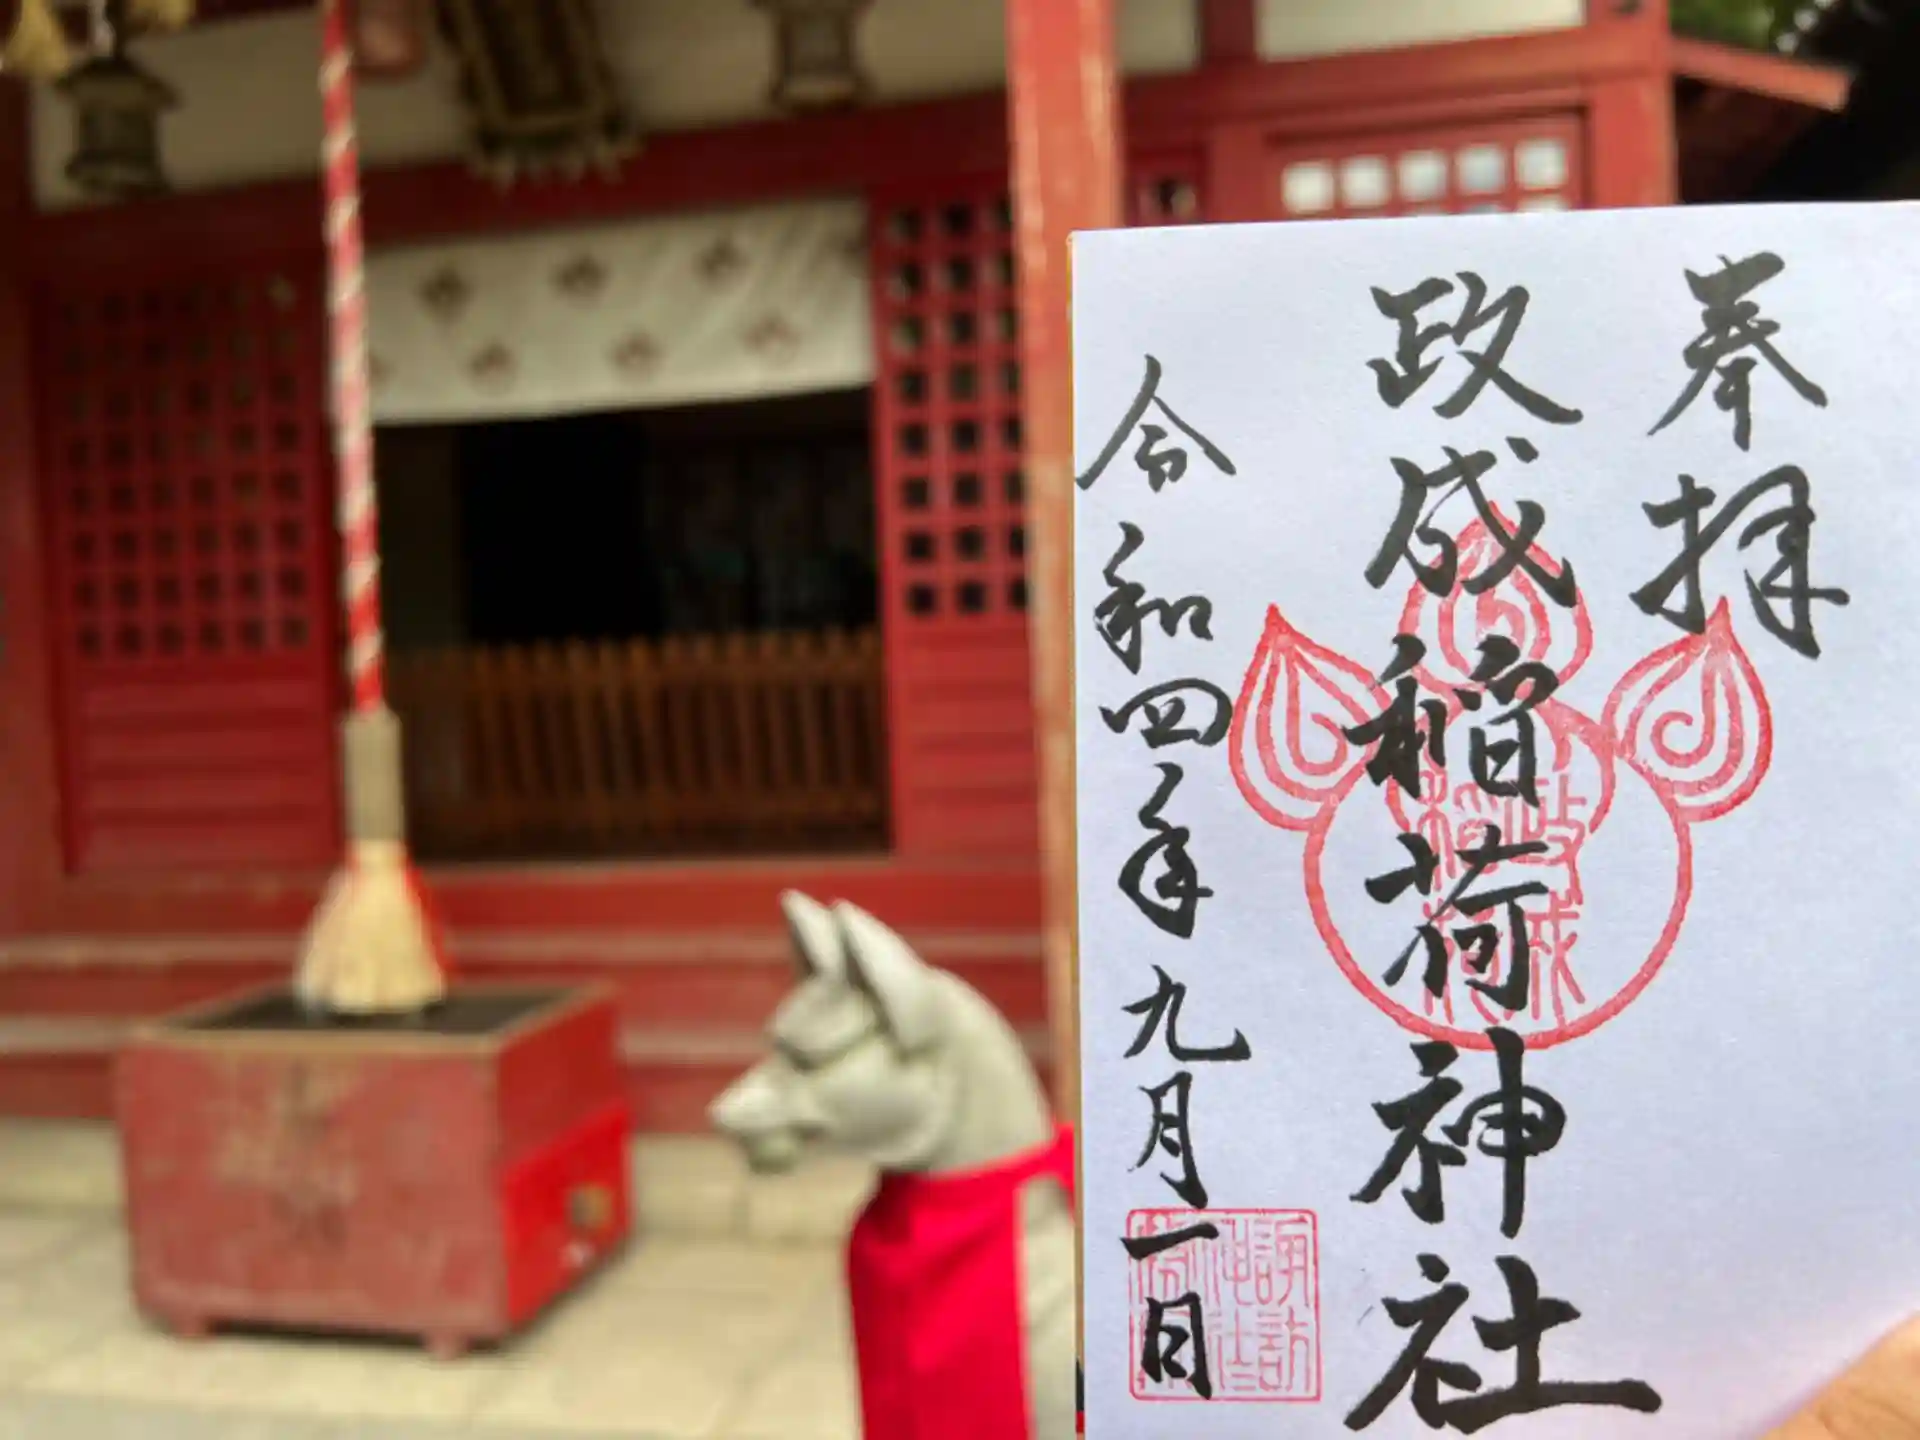 奉拝
政成稲荷神社
令和四年九月一日
政成
稲荷
諏訪
神社